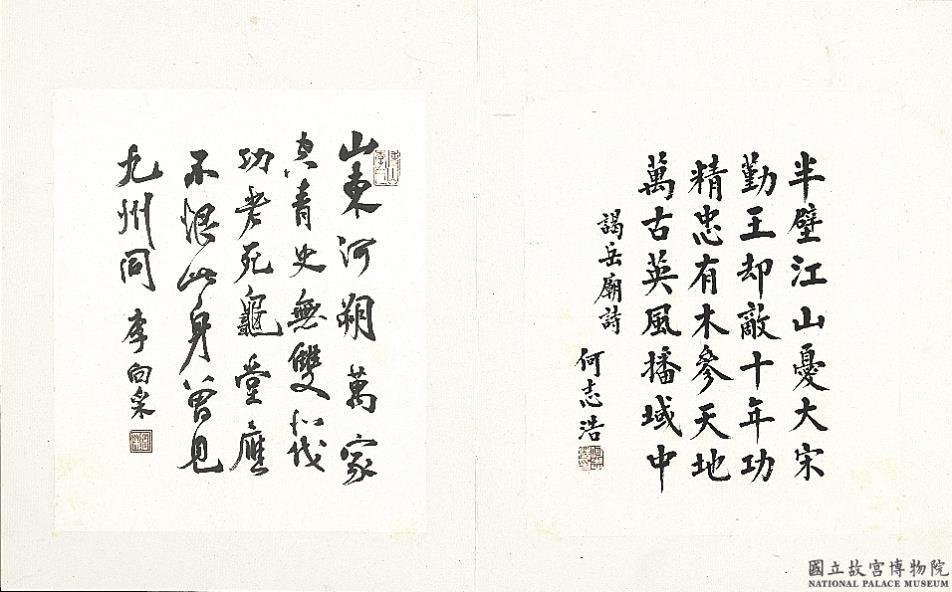 半壁江山憂大宋
勤王却敵十年功
精忠有木參天地
萬古英風播域中
謁岳廟詩
何志浩
山東河朔萬家
空青史無雙北伐
功老死龜堂應
不恨此身曾見
九州同 李向采
國立故宮博物院
NATIONAL PALACE MUSEUM